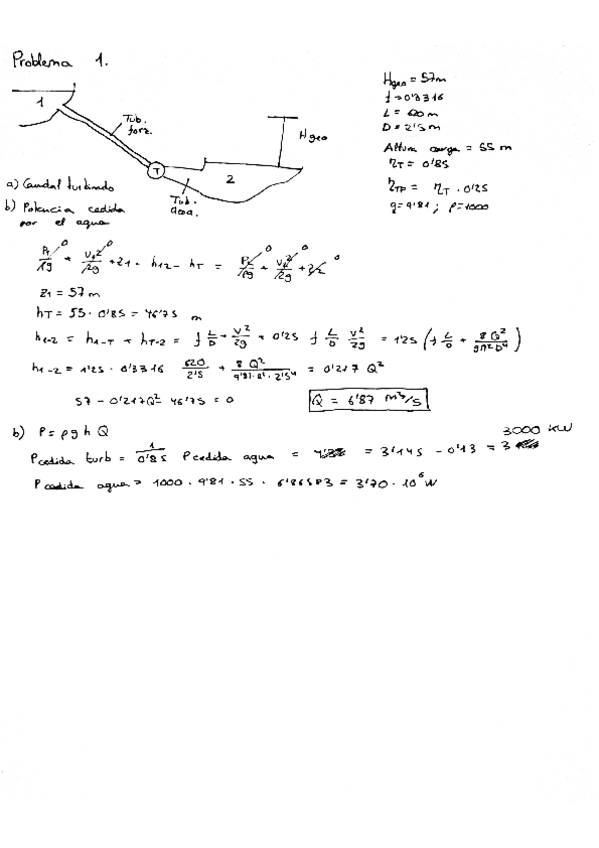 Problema 1.
Hgeo = 57m
f = 0'3316
L = 620 m
D = 2'5 m
Altura carga = 55 m
ηT = 0'85
ηTP = ηT · 0'25
g = 9'81 ; ρ = 1000
1
Tub. forz.
T
2
Hgeo
Tub. desa.
a) Caudal turbinado
b) Potencia cedida
por el agua
P1/ρg + V1²/2g + z1 - h12 - hT = P2/ρg + V2²/2g + z2
0 0 0 0 0
z1 = 57 m
hT = 55 · 0'85 = 46'75 m
h1-2 = h1-T + hT-2 = f L/D · V²/2g + 0'25 f L/D V²/2g = 1'25 (f L/D + 8Q²/gπ²D⁴)
h1-2 = 1'25 · 0'3316 620/2'5 + 8Q²/9'81·π²·2'5⁴ = 0'217 Q²
57 - 0'217Q² - 46'75 = 0
Q = 6'87 m³/s
b) P = ρ g h Q
3000 KW
P cedida turb = 1/0'85 P cedida agua = = 3'145 - 0'13 = 3
P cedida agua = 1000 · 9'81 · 55 · 6'86583 = 3'70 · 10⁶ W